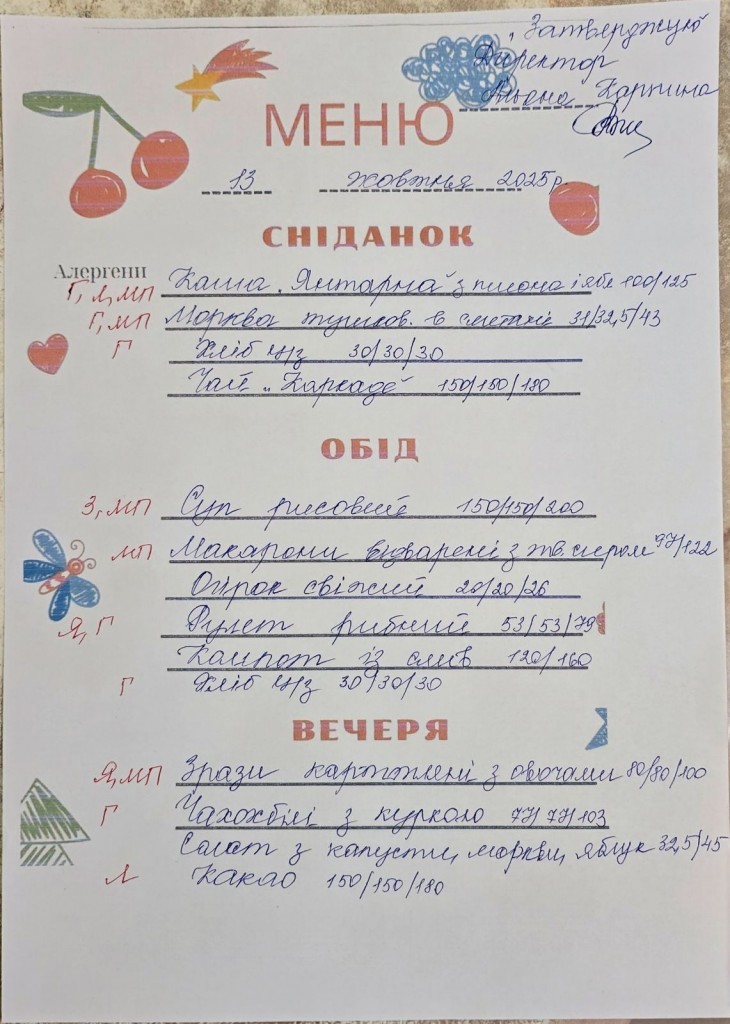 „Затверджую
Директор
Альона Карпина
МЕНЮ
13 жовтня 2025р.
СНІДАНОК
Алергени
Г, Л, МП Каша „Янтарна" з пшона і ябл 100/125
Г, МП Морква тушков. в сметані 31/32,5/43
Г Хліб ц/з 30/30/30
Чай „Каркаде" 150/150/180
ОБІД
З, МП Суп рисовий 150/150/200
МП Макарони відварені з тв. сиром 97/122
Огірок свіжий 20/20/26
Я, Г Рулет рибний 53/53/79
Компот із слив 120/160
Г Хліб ц/з 30/30/30
ВЕЧЕРЯ
Я, МП Зрази картопляні з овочами 80/80/100
Г Чахохбілі з куркою 77/77/103
Салат з капусти, моркви, яблук 32,5/45
Л Какао 150/150/180